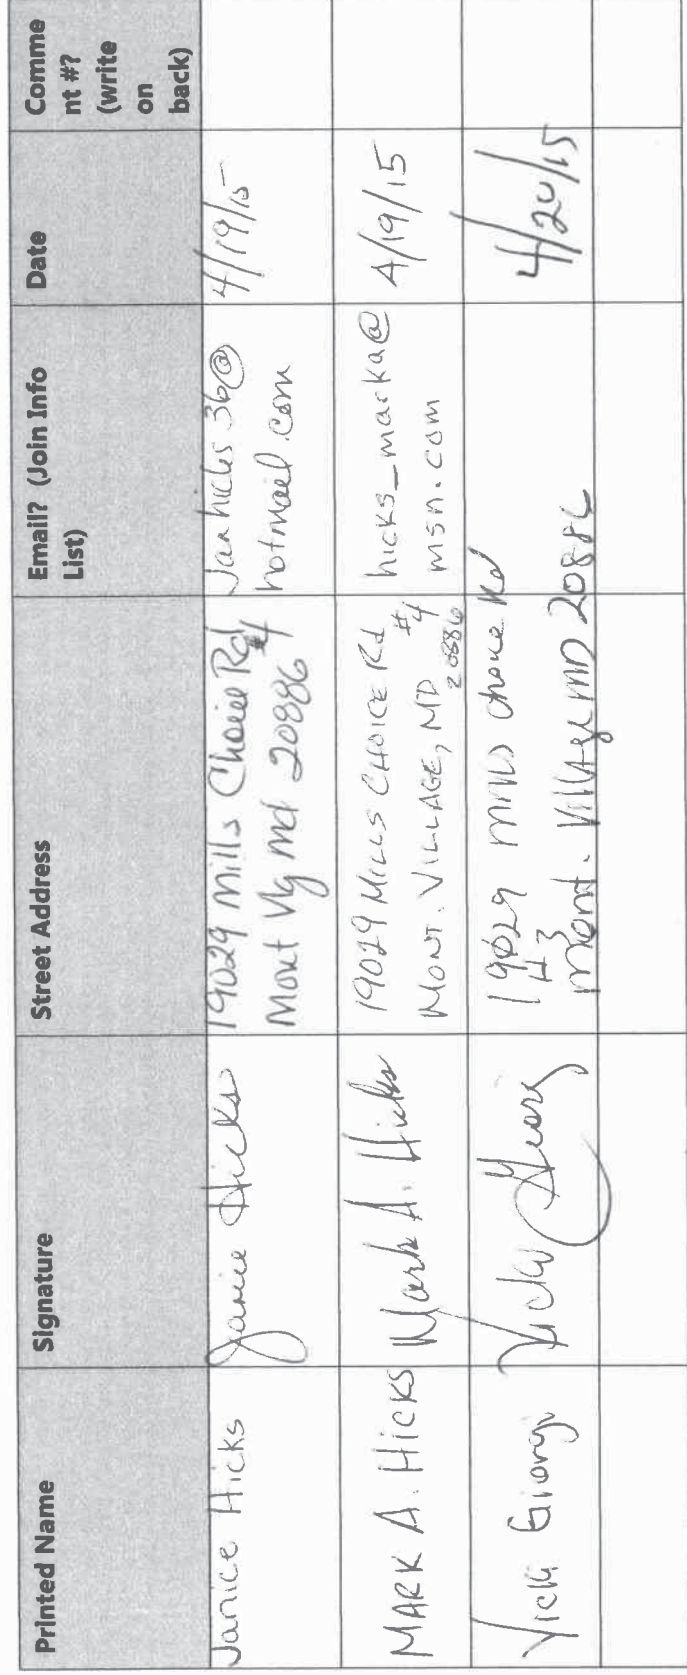 Printed Name
Signature
Street Address
Email? (Join Info
List)
Date
Comme
nt #?
(write
on
back)
Janice Hicks
Janice Hicks
19029 Mills Choice Rd
#4
Mont Vlg md 20886
Janhicks36@
hotmail.com
4/19/15
MARK A. HICKS
Mark A. Hicks
19029 MILLS CHOICE Rd
#4
MONT. VILLAGE, MD
20886
hicks_marka@
msn.com
4/19/15
Vicki
Vicki
19029 Mills Choice Rd
#3
Mont. Village MD 20886
4/20/15